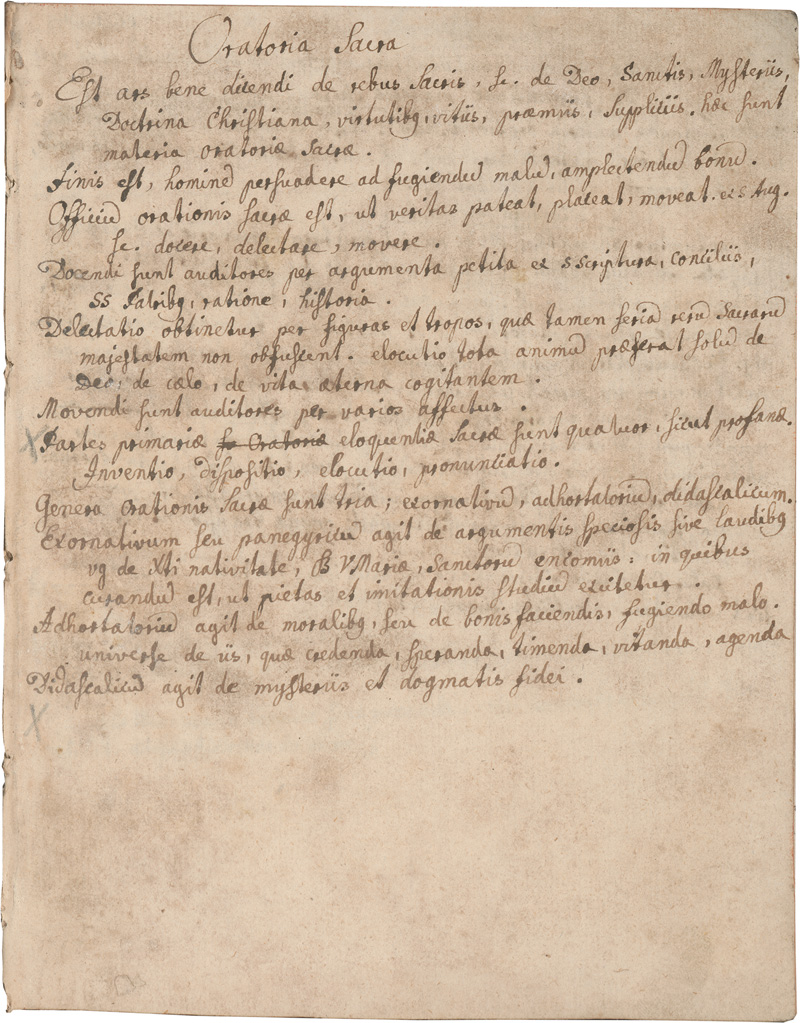 Oratoria Sacra
Est ars bene dicendi de rebus Sacris, sc. de Deo, Sanctis, Mysteriis,
Doctrina Christiana, virtutibq, vitiis, præmiis, Suppliciis. hæc sunt
materia oratoriæ Sacræ.
Finis est, hominē persuadere ad fugiendū malū, amplectendū bonū.
Officiū orationis sacræ est, ut veritas pateat, placeat, moveat. ex S Aug.
sc. docere, delectare, movere.
Docendi sunt auditores per argumenta petita ex S Scriptura, Conciliis,
SS Patribq, ratione, historia.
Delectatio obtinetur per figuras et tropos, quæ tamen seriā rerū Sacrarū
majestatem non obfuscent. elocutio tota animū præferat solū de
Deo, de cælo, de vita æterna cogitantem.
Movendi sunt auditores per varios affectus.
Partes primariæ Oratoriæ eloquentiæ Sacræ sunt quatuor, sicut profanæ.
Inventio, dispositio, elocutio, pronunciatio.
Genera Orationis Sacræ sunt tria; exornativū, adhortatoriū, didascalicum.
Exornativum seu panegyricū agit de argumentis speciosis sive laudibq
vg de Xti nativitate, B V Mariæ, Sanctorū encomiis: in quibus
curandū est, ut pietas et imitationis studiū excitetur.
Adhortatoriū agit de moralibq, seu de bonis faciendis, fugiendo malo.
universe de iis, quæ credenda, speranda, timenda, vitanda, agenda
Didascalicū agit de mysteriis et dogmatis fidei.